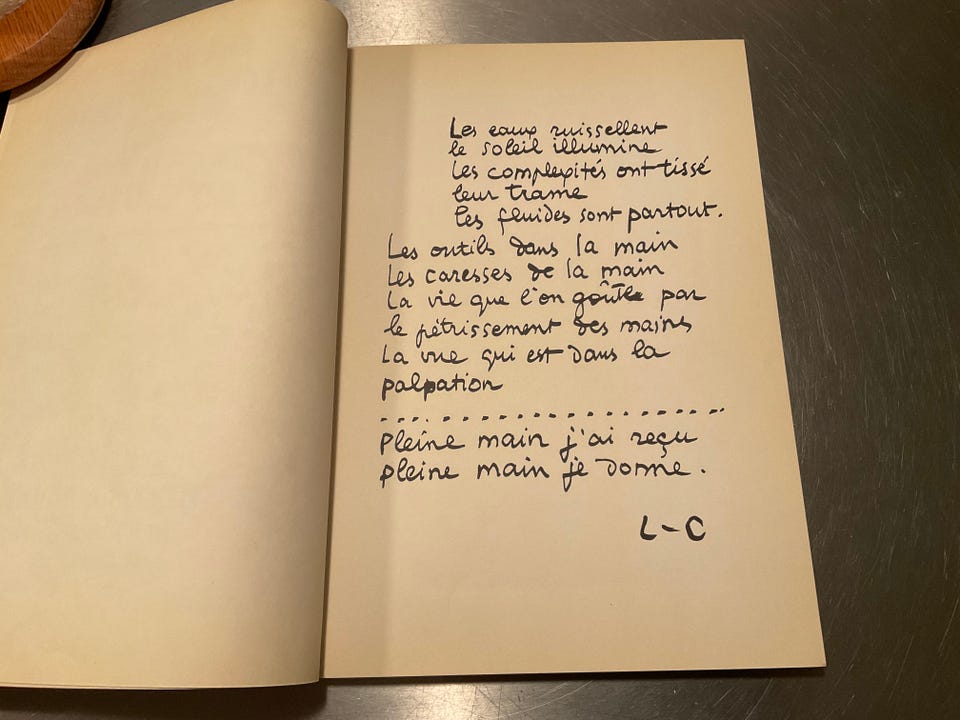 Les eaux ruissellent
le soleil illumine
les complexités ont tissé
leur trame
les fluides sont partout.
Les outils dans la main
Les caresses de la main
La vie que l'on goûte par
le pétrissement des mains
La vue qui est dans la
palpation
....................
Pleine main j'ai reçu
pleine main je donne.
L-C